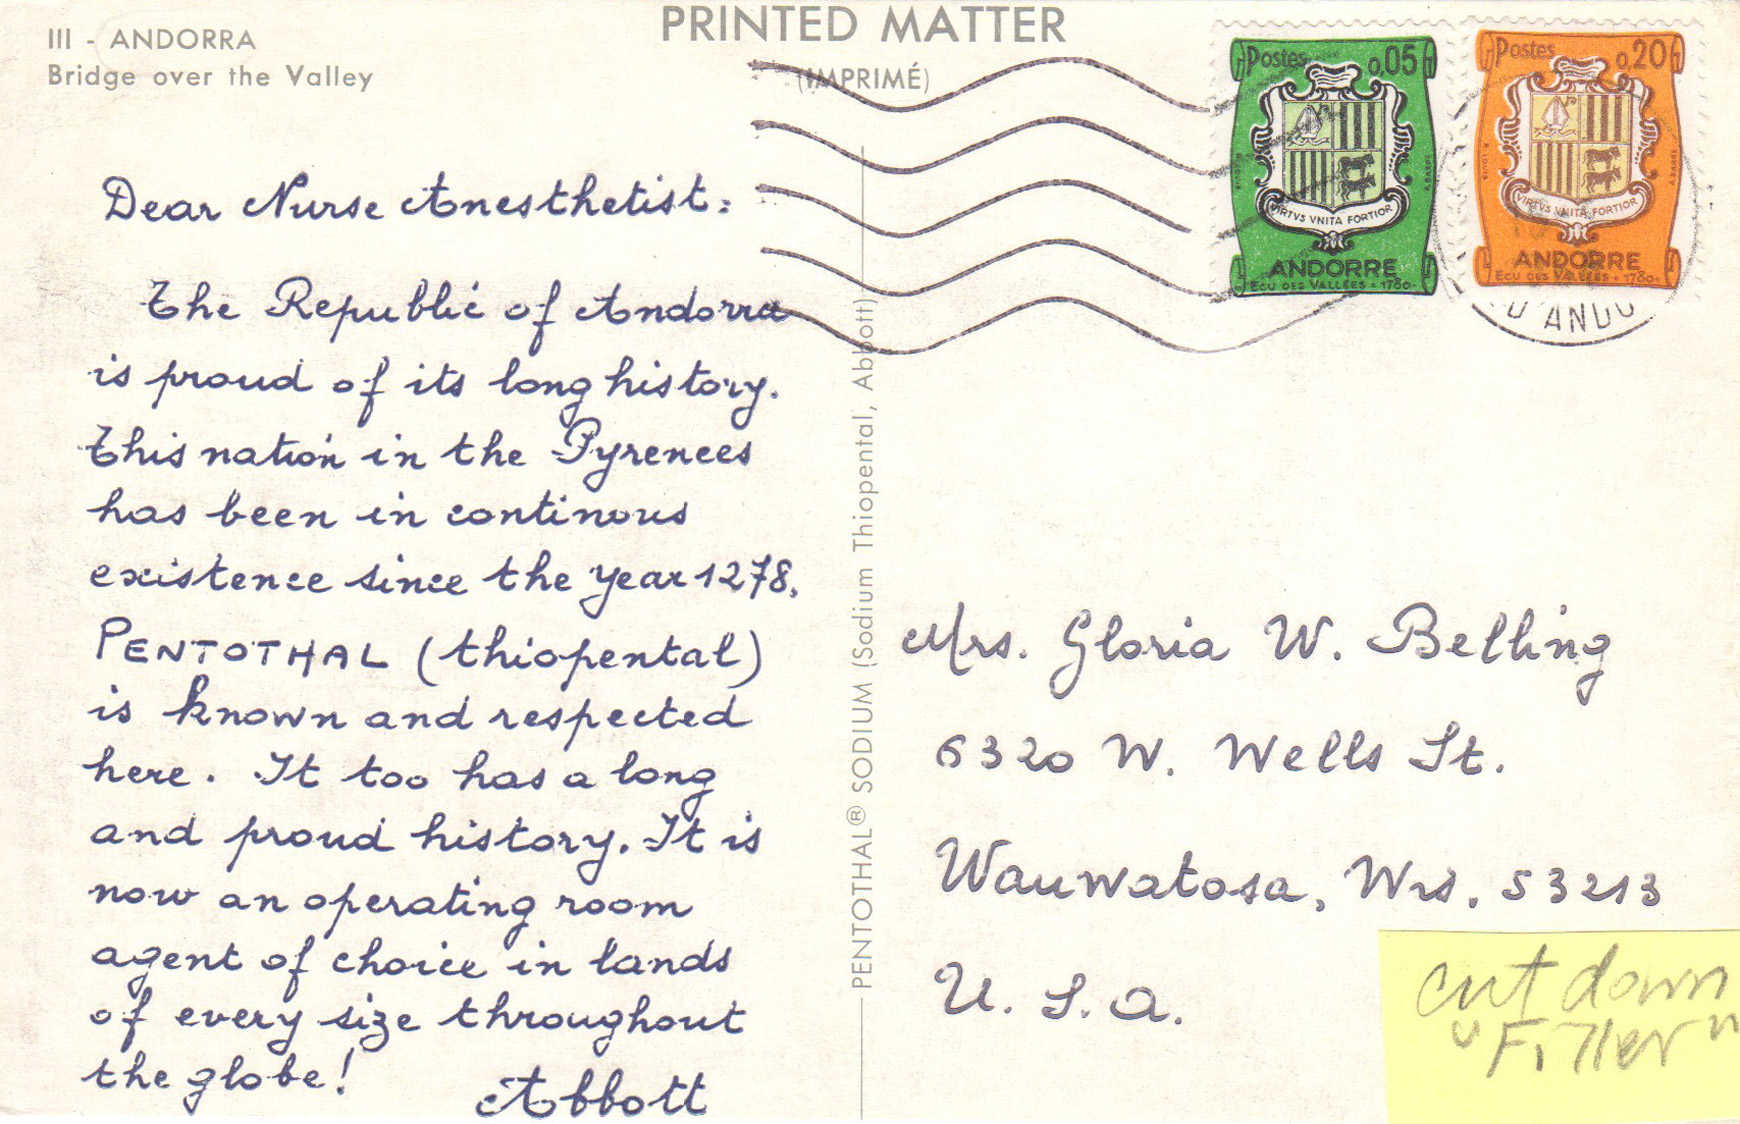 III - ANDORRA
Bridge over the Valley
PRINTED MATTER
(IMPRIMÉ)
Postes 0,05
VIRTVS VNITA FORTIOR
ANDORRE
ECU DES VALLÉES • 1760•
Postes 0,20
VIRTVS VNITA FORTIOR
ANDORRE
ECU DES VALLÉES • 1780•
D'ANDO
Dear Nurse Anesthetist:
The Republic of Andorra
is proud of its long history.
This nation in the Pyrenees
has been in continous
existence since the year 1278.
PENTOTHAL (thiopental)
is known and respected
here. It too has a long
and proud history. It is
now an operating room
agent of choice in lands
of every size throughout
the globe!
Abbott
PENTOTHAL® SODIUM (Sodium Thiopental, Abbott)
Mrs. Gloria W. Belling
6320 W. Wells St.
Wauwatosa, Wis. 53213
U.S.A.
cut down
"Filler"